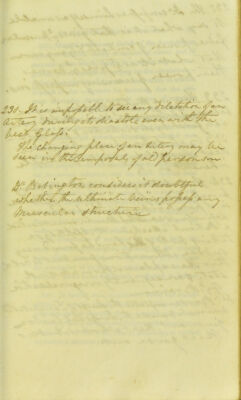 230. It is impossible to see any dilatation of an
artery during its diastole even with the
best Glass.
The changing place of an artery may be
seen in the temporal of old persons
Dr Babington considers it doubtful
whether the ultimate veins possess any
muscular structure